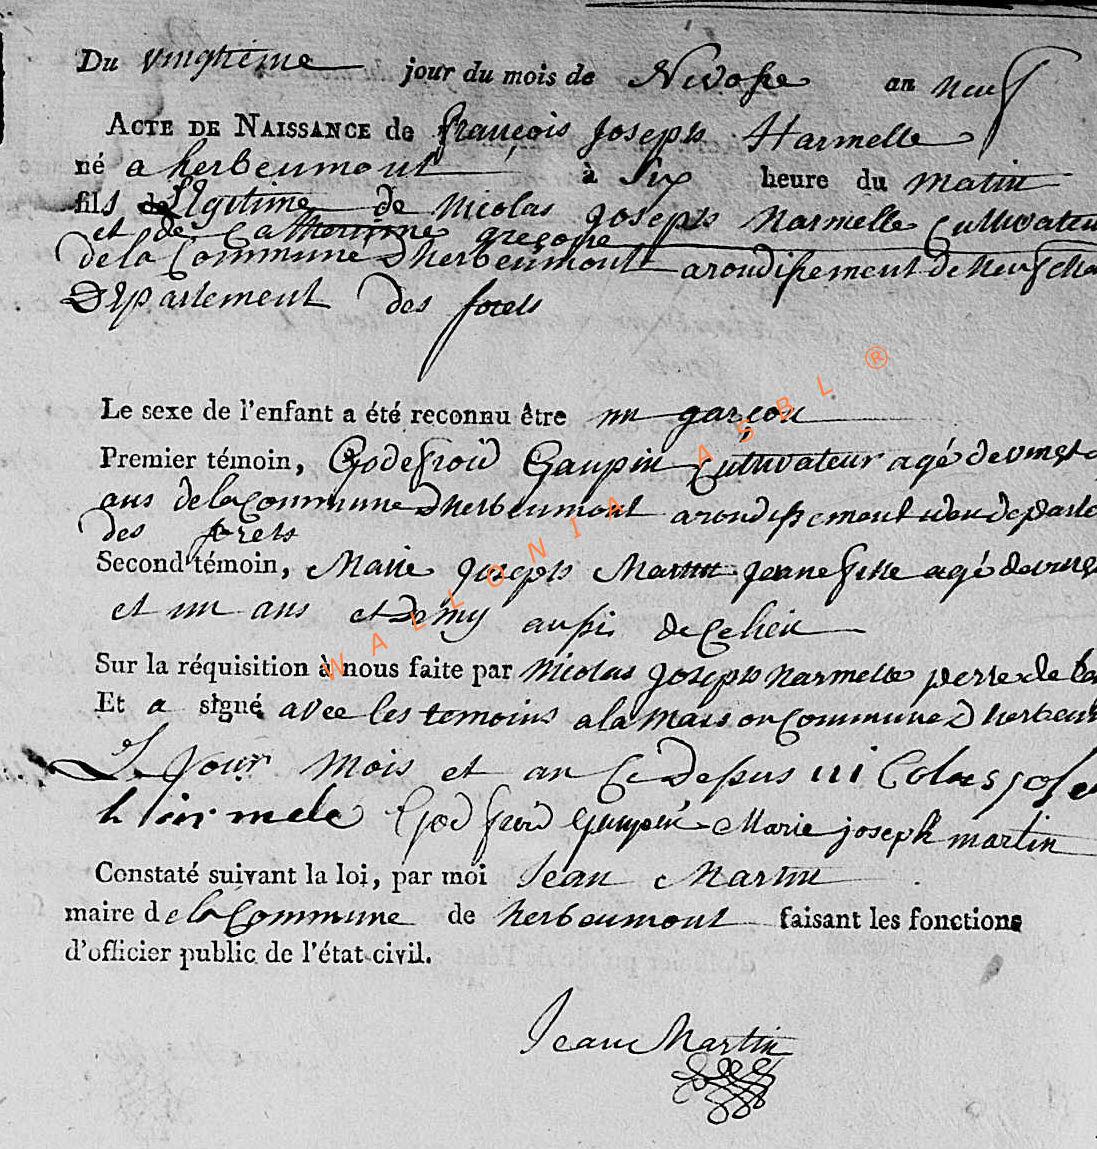 Du vingtième jour du mois de Nivose an neuf
ACTE DE NAISSANCE de françois Joseph Harmelle
né a herbeumont à six heure du matin
fils légitime de Nicolas joseph harmelle Cultivateu
et de Catherinne greçoire
de la Commune Dherbeumont arondissement de neufcha
Département des forets
Le sexe de l'enfant a été reconnu être un garçon
Premier témoin, Godefroid Gaupin Cultivateur agé de vingt
ans de la Commune dherbeumont arondissement du departe
des forets
Second témoin, Marie joseph Martin jenne fille agé de ving
et un ans et Demy aussi de Ce lieu
Sur la réquisition à nous faite par Nicolas joseph harmelle perre de
Et a signé avec les temoins a la maison Commune d herbeu
L jour mois et an Ce Dessus niColas jose
harmele Godfroid Gaupin Marie joseph martin
Constaté suivant la loi, par moi Jean Martin
maire de la Commune de herbeumont faisant les fonctions
d'officier public de l'état civil.
Jean Martin
WALLONIA ASBL ®